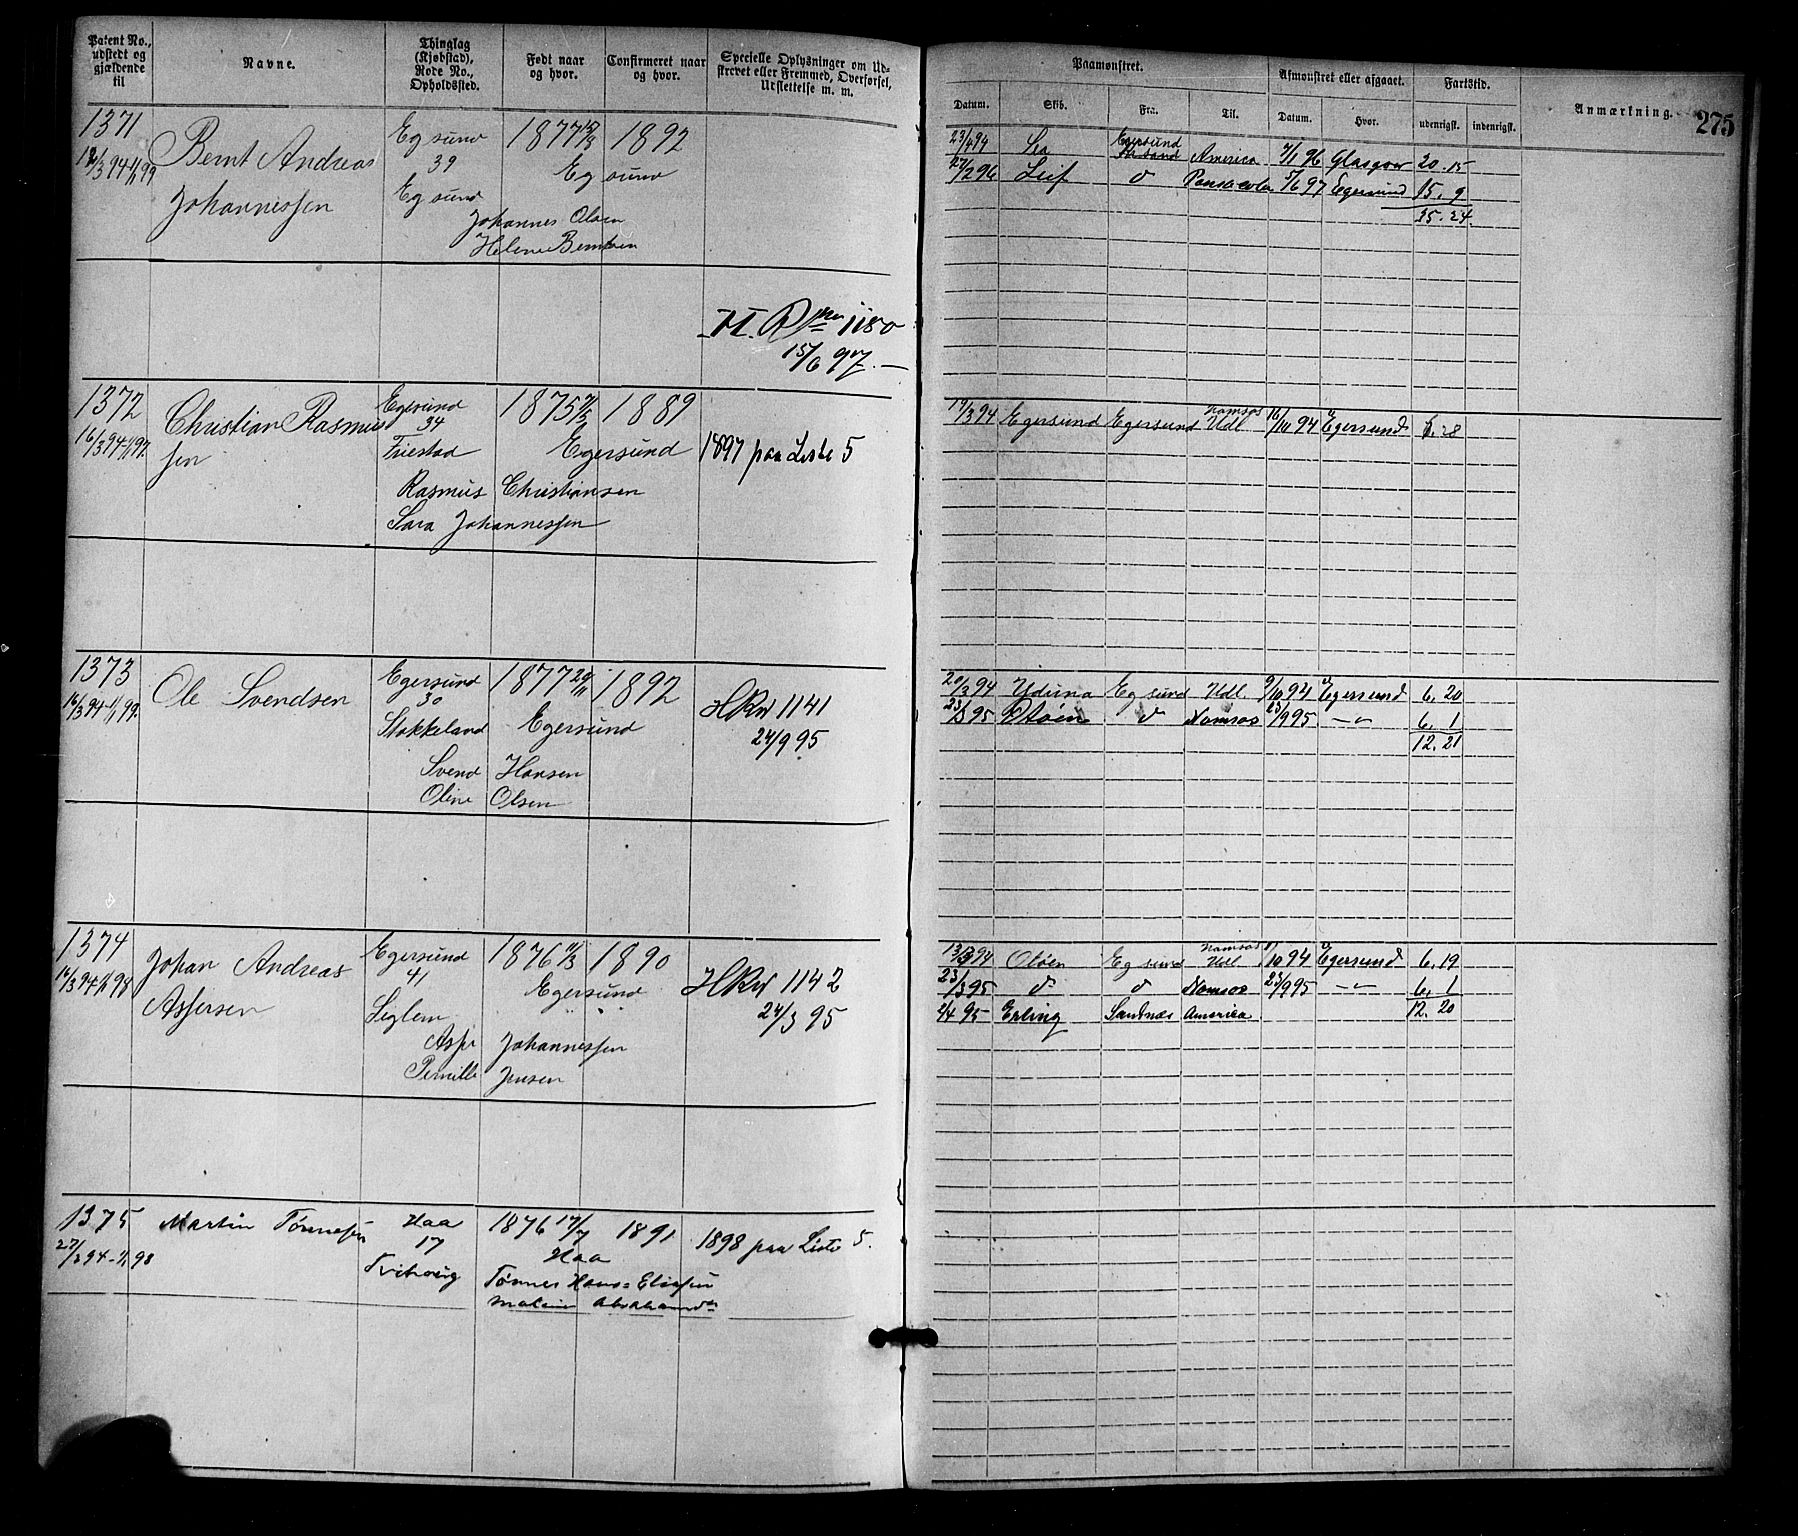 Patent No., udstedt og gjældende til
Navne.
Thinglag (Kjøbstad), Rode No., Opholdssted.
Født naar og hvor.
Confirmeret naar og hvor.
Specielle Oplysninger om Udskrevet eller Fremmed, Overførsel, Udslettelse m. m.
Paamønstret.
Afmønstret eller afgaaet.
Fartstid.
Anmærkning.
275
Datum. Skib. Fra. Til. Datum. Hvor. udenrigsk. indenrigsk.
1371 Egsund 1877 1892
Bernt Andreas
39 Egsund
Johannessen
Egsund
Johannes Olsen
Helene Berntsen
23/4 94 Egersund America 7/1 96 Glasgow 20. 15
27/2 96 Leif d Pensacola 5/6 97 Egersund 15. 9
35. 24
1180
15/6 97.
1372 Egersund 1875 1889
Christian Rasmus
sen
16/3 94 34
Friestad Egersund 1897 paa Liste 5
Rasmus Christiansen
Sara Johannessen
19/3 94 Egersund Egersund Namsos Udl 16/10 94 Egersund 6. 28
1373 Ole Svendsen Egersund 1877 29/11 1892
16/3 94-1/1 99. 30
Stokkeland Egersund
HRul 1141
24/9 95
Svend Hansen
Oline Olsen
20/3 94 Yduna Egsund Udl 9/10 94 Egersund 6. 20
23/3 95 d Namsos 23/9 95 -"- 6. 1
12. 21
1374 Egersund 1876 11/3 1890
Johan Andreas
41 Egersund
Assersen
Seglem
HRul 1142
24/3 95
Johannessen
Pernille Jensen
Egsund Namsos Udl 10 94 Egersund 6. 19
23/3 95 d d Namsos 23/9 95 -"- 6. 1
95 Erling Sandnæs America 12. 20
1375 Martin Tønnesen Haa 1876 17/7 1891
17 Haa 1898 paa Liste 5.
Tønnes Hans= Eliassen
Malene